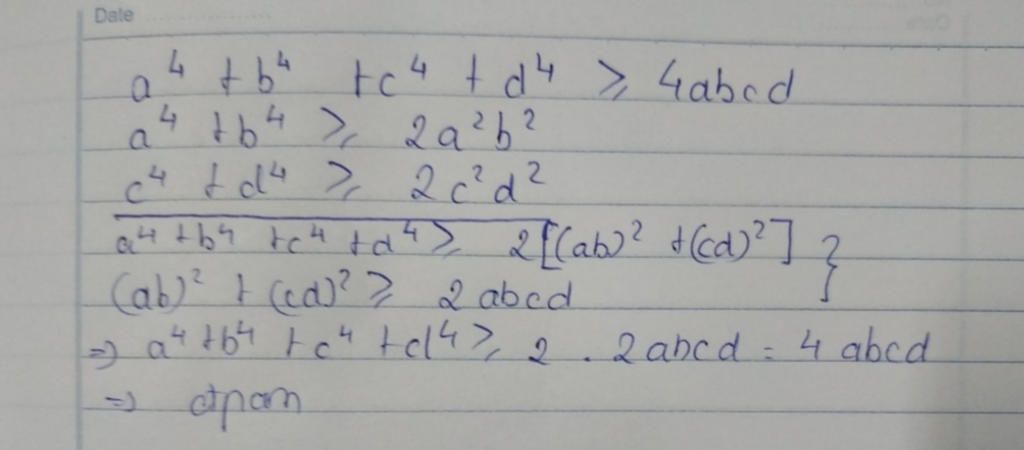 Date
a⁴ + b⁴ + c⁴ + d⁴ ≥ 4abcd
a⁴ + b⁴ ≥ 2a²b²
c⁴ + d⁴ ≥ 2c²d²
a⁴ + b⁴ + c⁴ + d⁴ ≥ 2[(ab)² + (cd)²] }
(ab)² + (cd)² ≥ 2abcd
⇒ a⁴ + b⁴ + c⁴ + d⁴ ≥ 2 . 2abcd = 4abcd
⇒